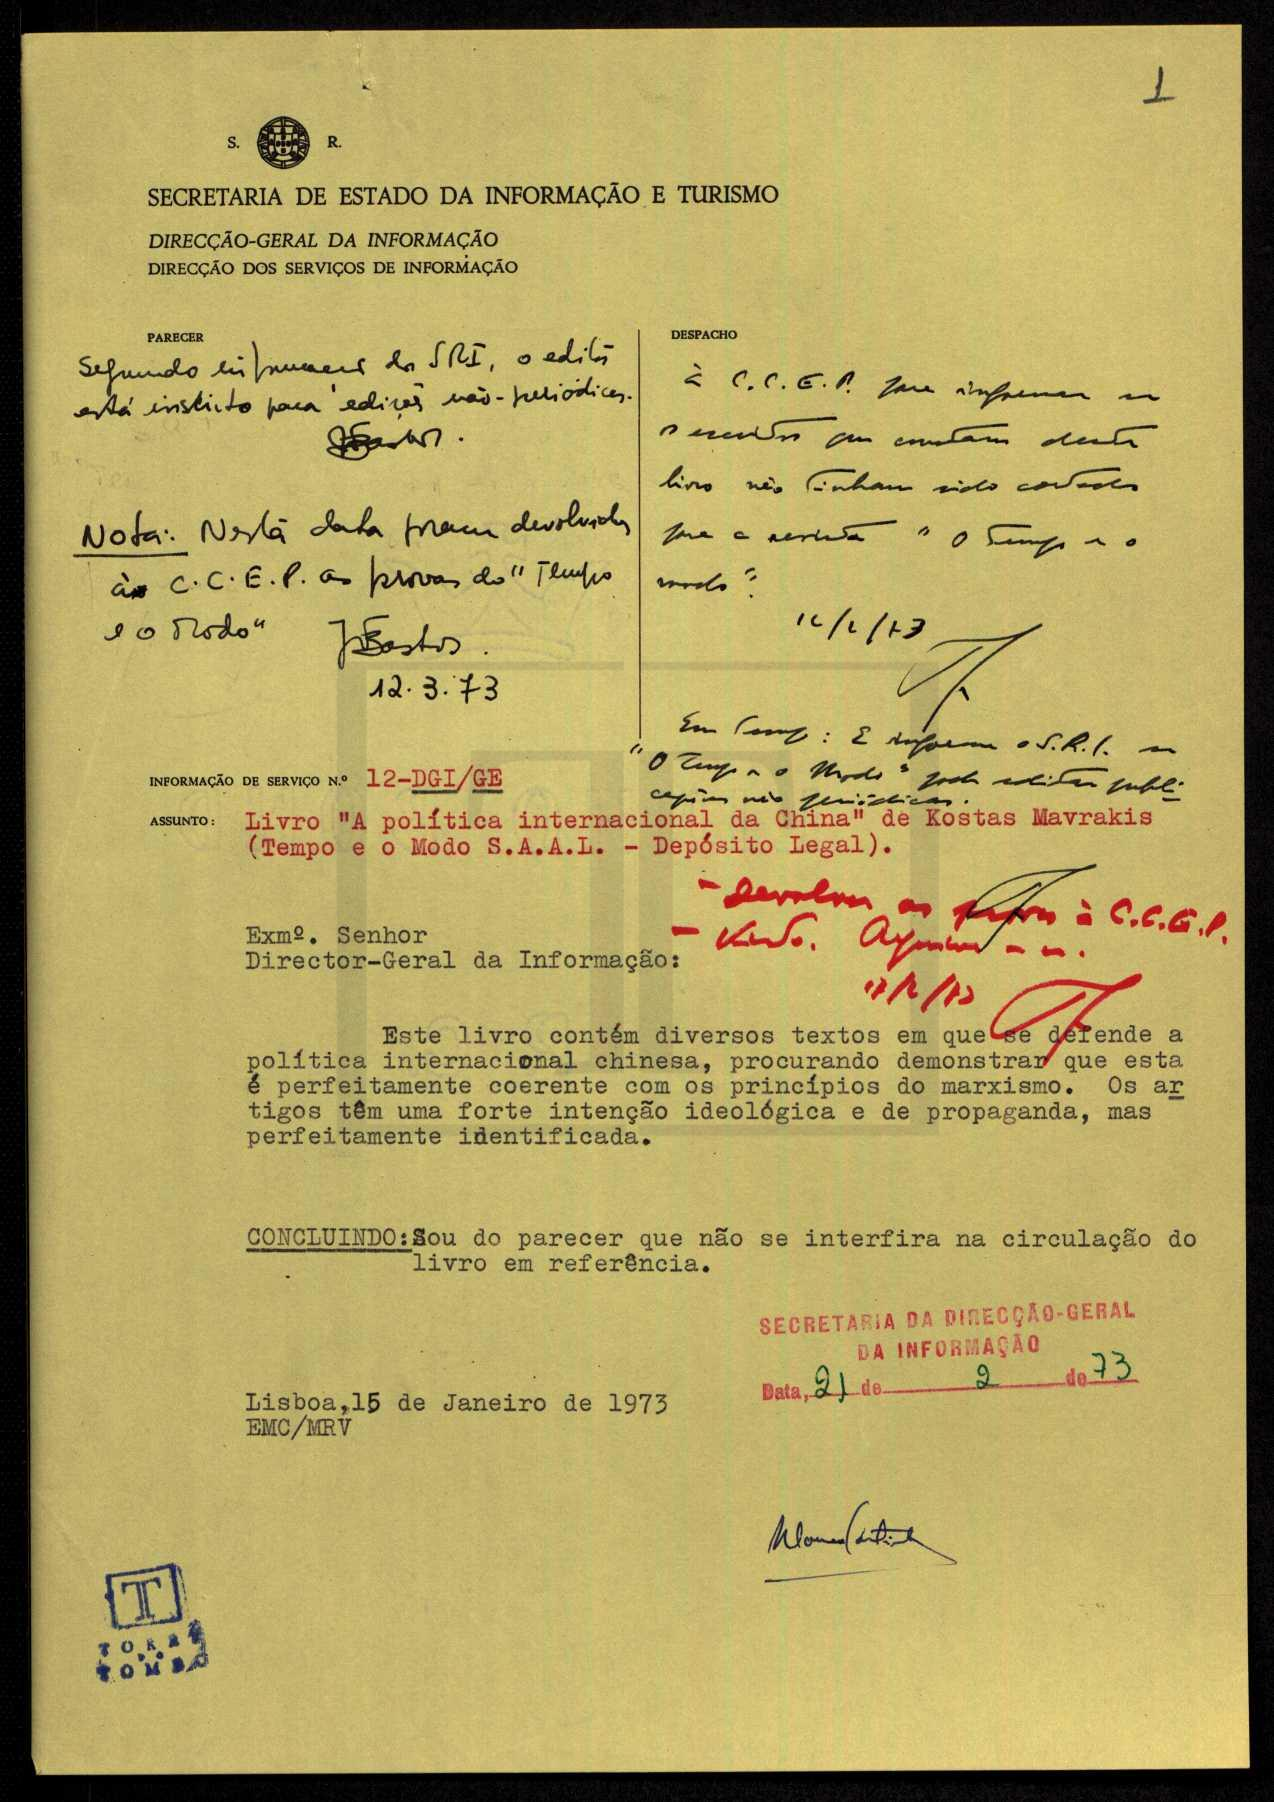 1
S. R.
SECRETARIA DE ESTADO DA INFORMAÇÃO E TURISMO
DIRECÇÃO-GERAL DA INFORMAÇÃO
DIRECÇÃO DOS SERVIÇOS DE INFORMAÇÃO
PARECER
Segundo da SRI, o editor
está inscrito para edições não-periódicas.
JBastos.
Nota: Nesta data foram devolvidas
à C.C.E.P. as provas do "Tempo
e o Modo"
JBastos.
12.3.73
DESPACHO
à C.C.E.P. para informar se
os que constam deste
livro não tinham sido cortados
para a revista "O Tempo e o
Modo".
Em Tempo: E informe o S.R.I. se
"O Tempo e o Modo" pode editar publi
cações não periódicas.
INFORMAÇÃO DE SERVIÇO N.º 12-DGI/GE
ASSUNTO: Livro "A política internacional da China" de Kostas Mavrakis
(Tempo e o Modo S.A.A.L. - Depósito Legal).
- Devolver as provas à C.C.E.P.
- Visto.
Exmº. Senhor
Director-Geral da Informação:
Este livro contém diversos textos em que se defende a
política internacional chinesa, procurando demonstrar que esta
é perfeitamente coerente com os princípios do marxismo. Os ar
tigos têm uma forte intenção ideológica e de propaganda, mas
perfeitamente identificada.
CONCLUINDO: Sou do parecer que não se interfira na circulação do
livro em referência.
SECRETARIA DA DIRECÇÃO-GERAL
DA INFORMAÇÃO
Data, 21 de 2 de 73
Lisboa, 15 de Janeiro de 1973
EMC/MRV
T
TORRE
DO
TOMBO